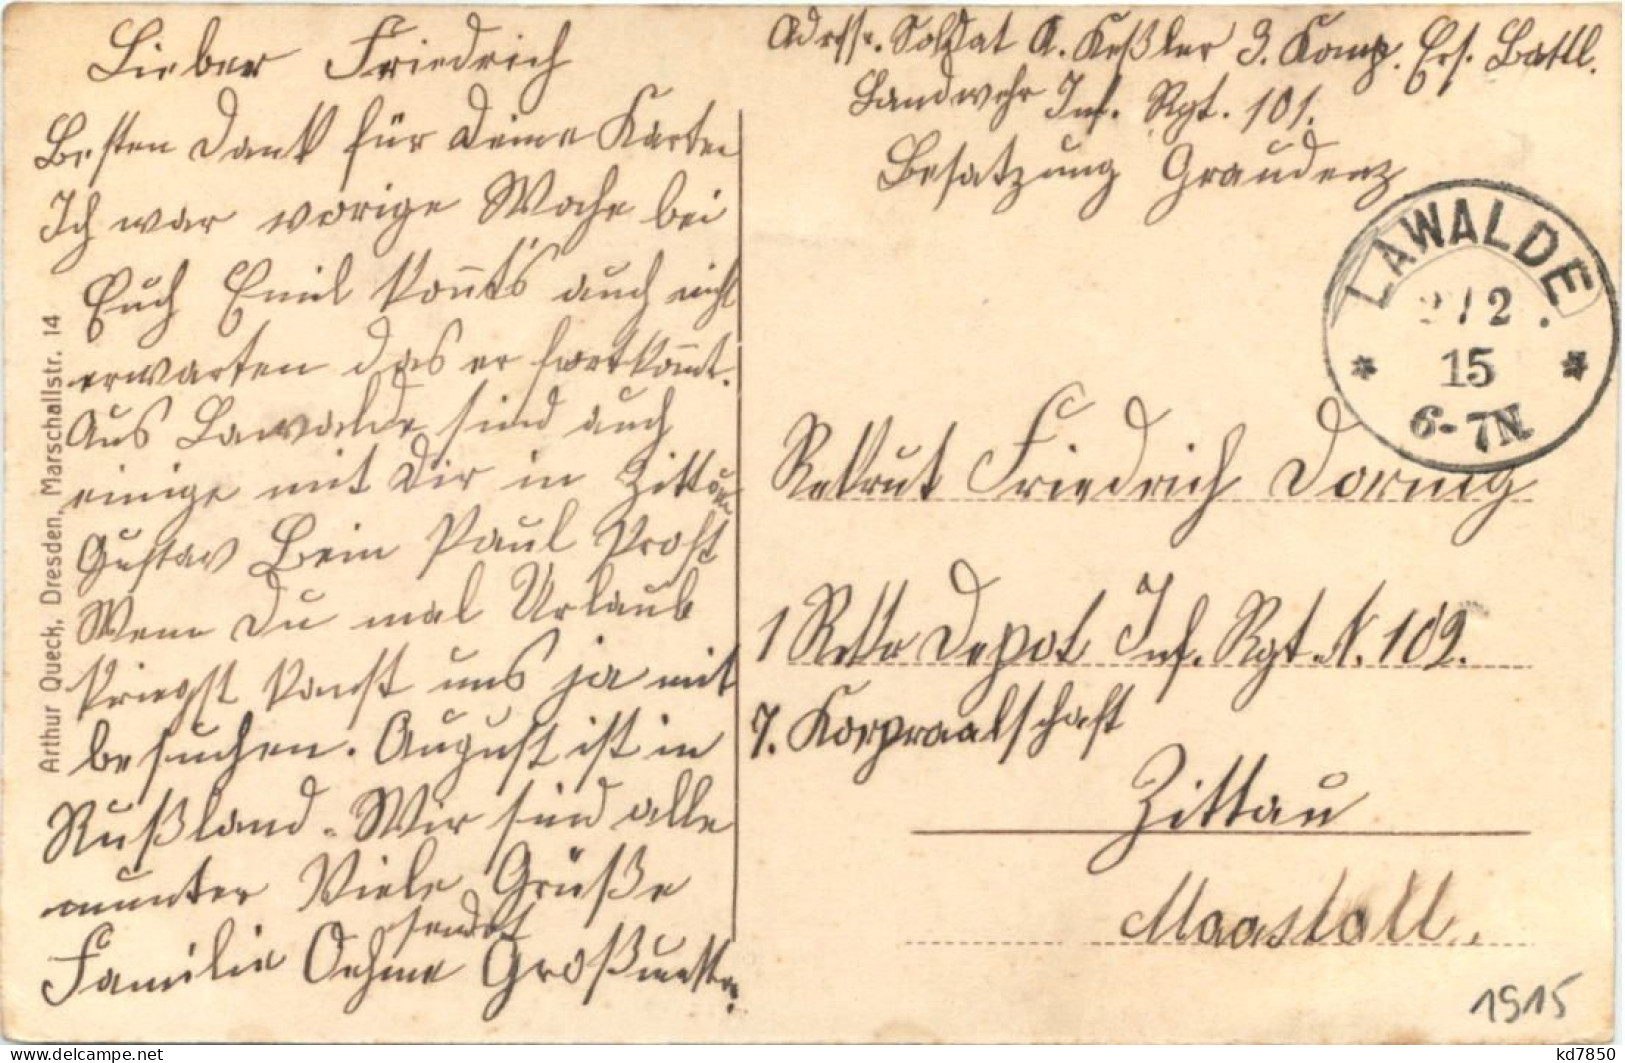 Lieber Friedrich
Besten Dank für Deine Karten
Ich war vorige Woche bei
Euch Emil konnt's auch nicht
erwarten das er fortkommt.
Aus Lawalde sind auch
einige mit Dir in Zittau
Gustav Bein Paul Prost
Wenn Du mal Urlaub
kriegst kanst uns ja mit
besuchen. August ist in
Rußland. Wir sind alle
munter Viele Grüße
sendet
Familie Oehme
Adresse. Soldat A. Keßler 3. Komp. Ers. Batll.
Landwehr Inf. Rgt. 101.
Besatzung Graudenz
LAWALDE
2/2
15
6-7N.
Rekrut Friedrich Dornig
1 Rekr Depot Inf. Rgt. N. 102.
7. Korpraalschaft
Zittau
1915
Arthur Queck, Dresden, Marschallstr. 14
kd7850